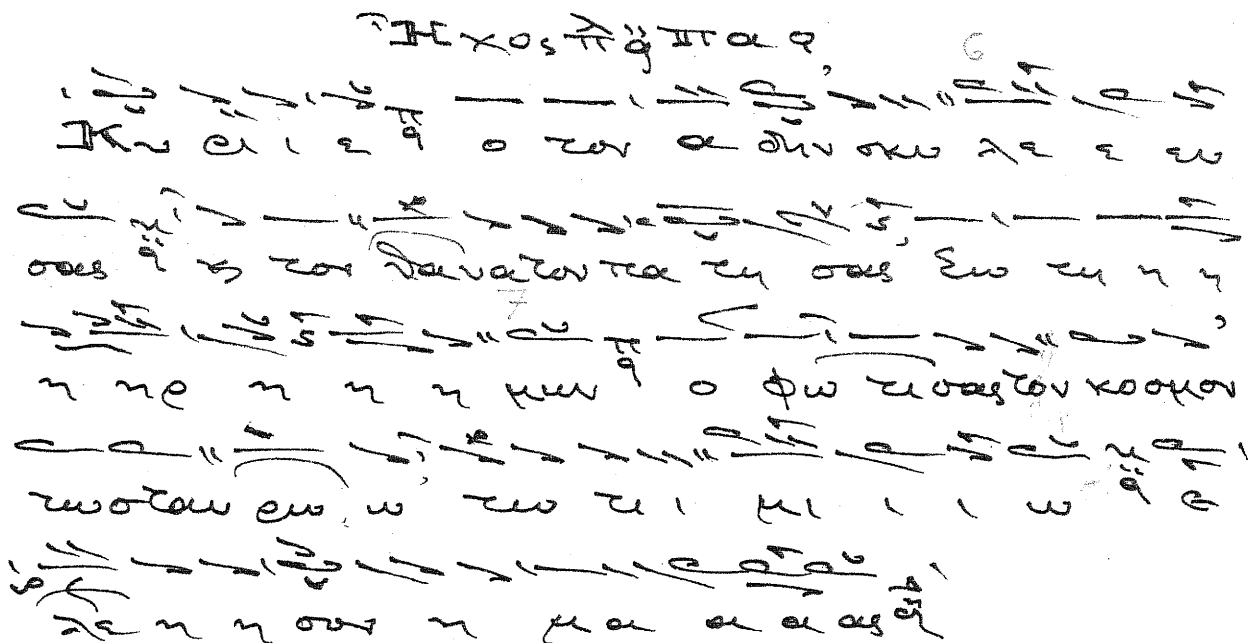 Ἦχος λ π ῎ q Πα q
Κυ ρι ι ε π q ο τον α δην σκυ λε ε ευ
σας q κ τον θανατον πα τη σας ζω τη η η
η ηρ η η η μιν π q ο φω τισας τον κοσμον
τω σταυ ρω ω τω τι ι μι ι ι ω q ε
λε η η σον η μα α α ας q